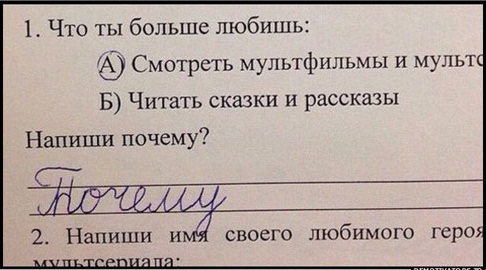 1. Что ты больше любишь:
А) Смотреть мультфильмы и мультс
Б) Читать сказки и рассказы
Напиши почему?
Почему
2. Напиши имя своего любимого героя
мультсериала: